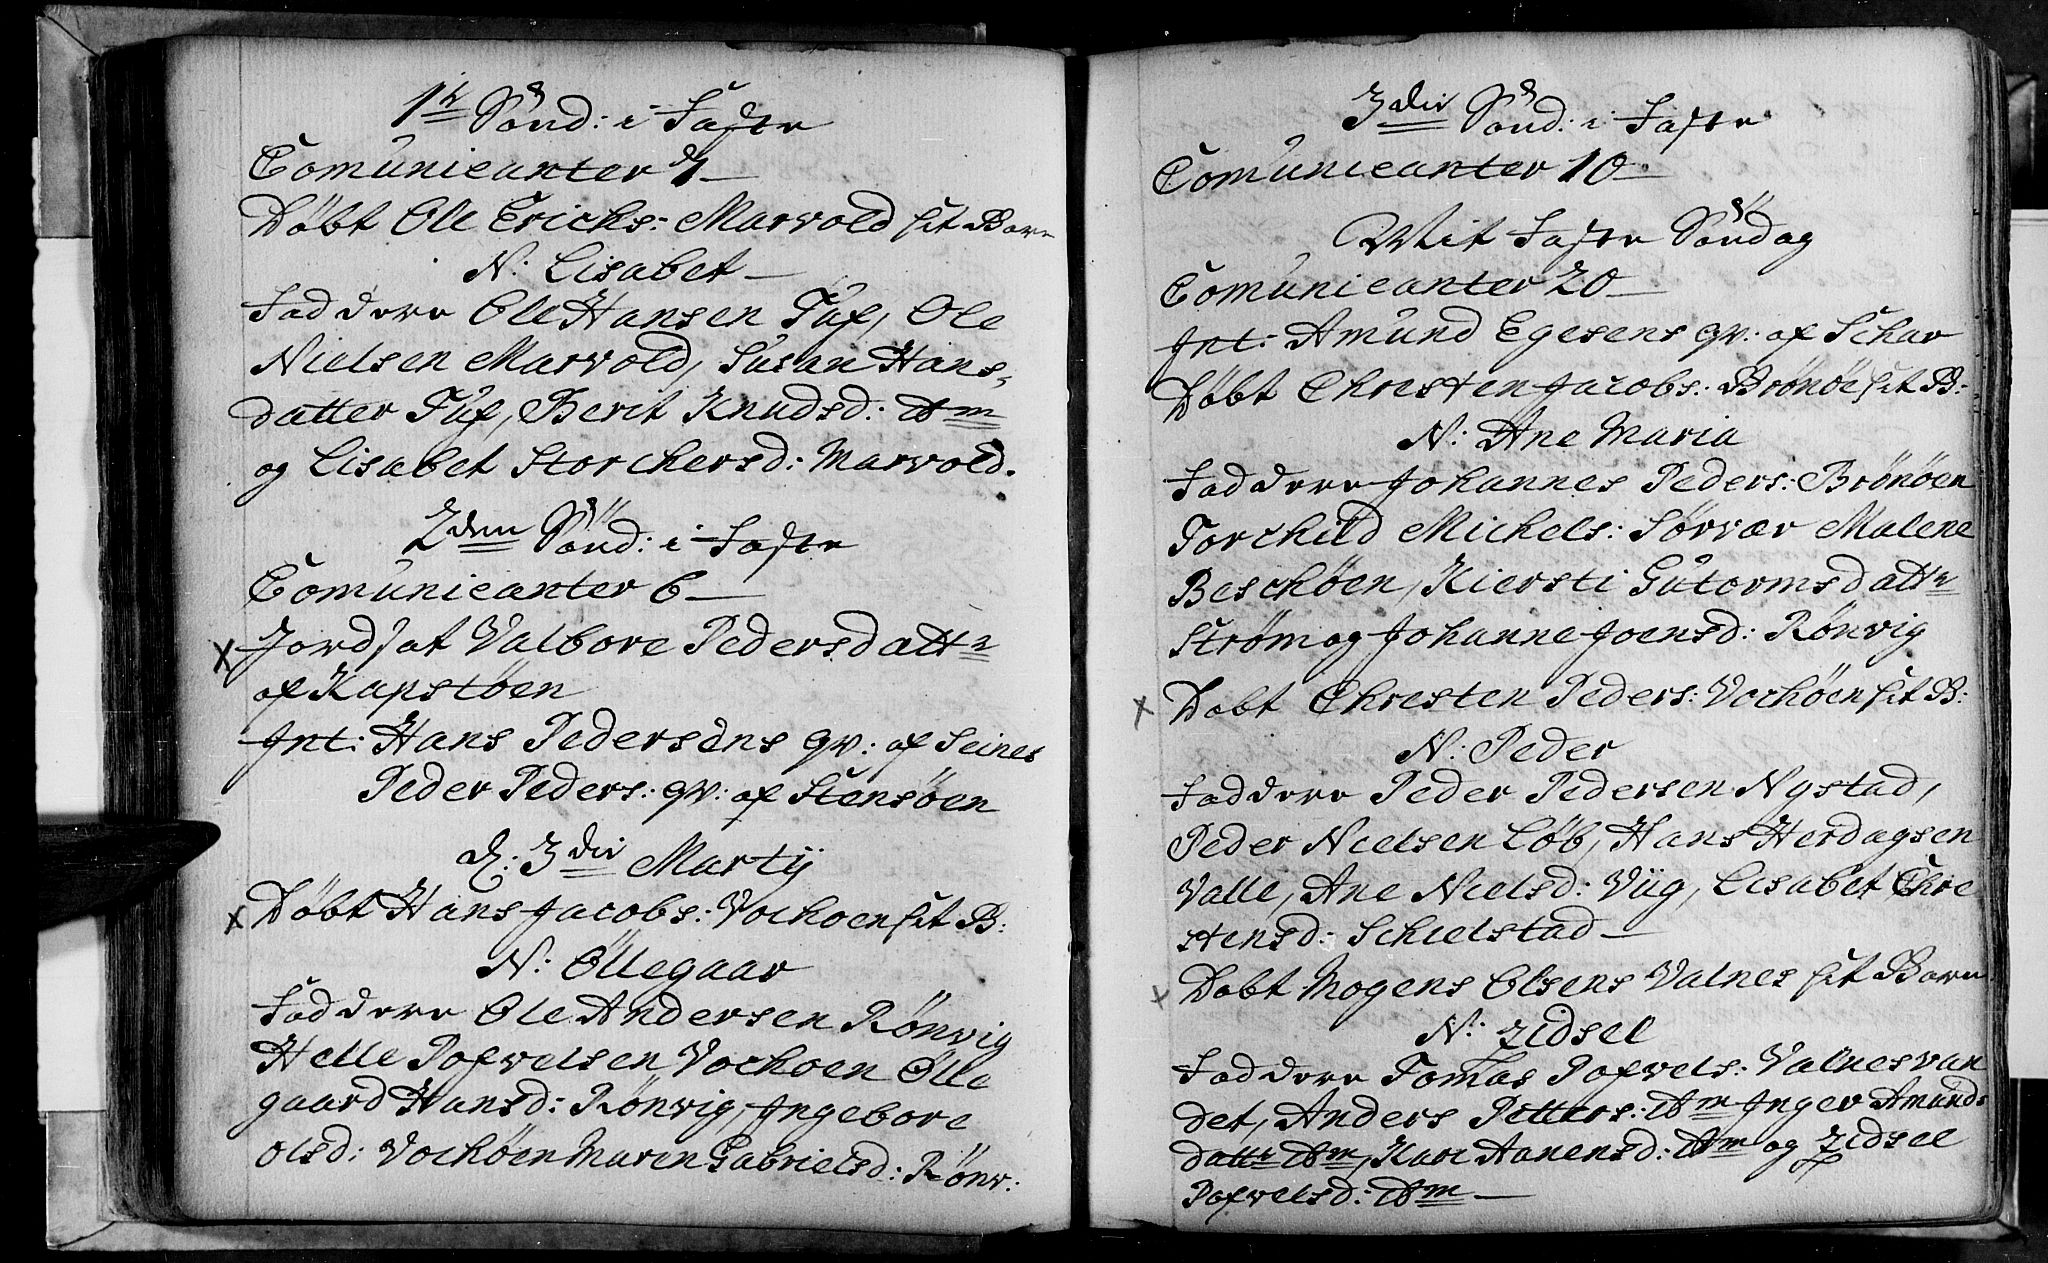 1te Sönd: i Faste
Comunicanter 7
Döbt Ole Erichs: Marvold sit Barn
N: Lisabet
Faddere Ole Hansen Tuf, Ole
Nielsen Marvold, Susan Hans-
datter Tuf, Berit Knudsd: Am
og Lisabet Storchersd: Marvold.
2den Sönd: i Faste
Comunicanter 6
x Jordsat Valbore Pedersdattr
af Kapstöen
Int: Hans Pedersens qv: af Seines
Peder Peders: qv: af Stensöen
d: 3die Martij
x Döbt Hans Jacobs: Vochoen sit B:
N: Öllegaar
Faddere Ole Andersen Rönvig
Helle Pofvelsen Vochoen Olle
gaard Hansd: Rönvig, Ingebore
Olsd: Vochöen Maren Gabrielsd: Rönv:
3die Sönd: i Faste
Comunicanter 10
Mit Faste Söndag
Comunicanter 20
Int: Amund Egesens qv: af Schav
Döbt Chresten Jacobs: Brönöe sit B:
N: Ane Maria
Faddere Johannes Peders: Brönöen
Torchild Michels: Sörvær Malene
Beschöen, Kiersti Gutormsdattr
Ström og Johanne Joensd: Rönvig
x Döbt Chresten Peders: Vochöen sit B:
N: Peder
Faddere Peder Pedersen Nystad,
Peder Nielsen Löb, Hans Herdagsen
Valle, Ane Nielsd: Viig, Lisabet Chre
stensd: Schielstad
x Döbt Mogens Olsens Valnes sit Barn
N: Zidsel
Faddere Tomas Pofvels: Valnesvan
det, Anders Petters: Am Inger Amunds
datter Am, Kari Aanensd: Am og Zidsel
Pofvelsd: Am